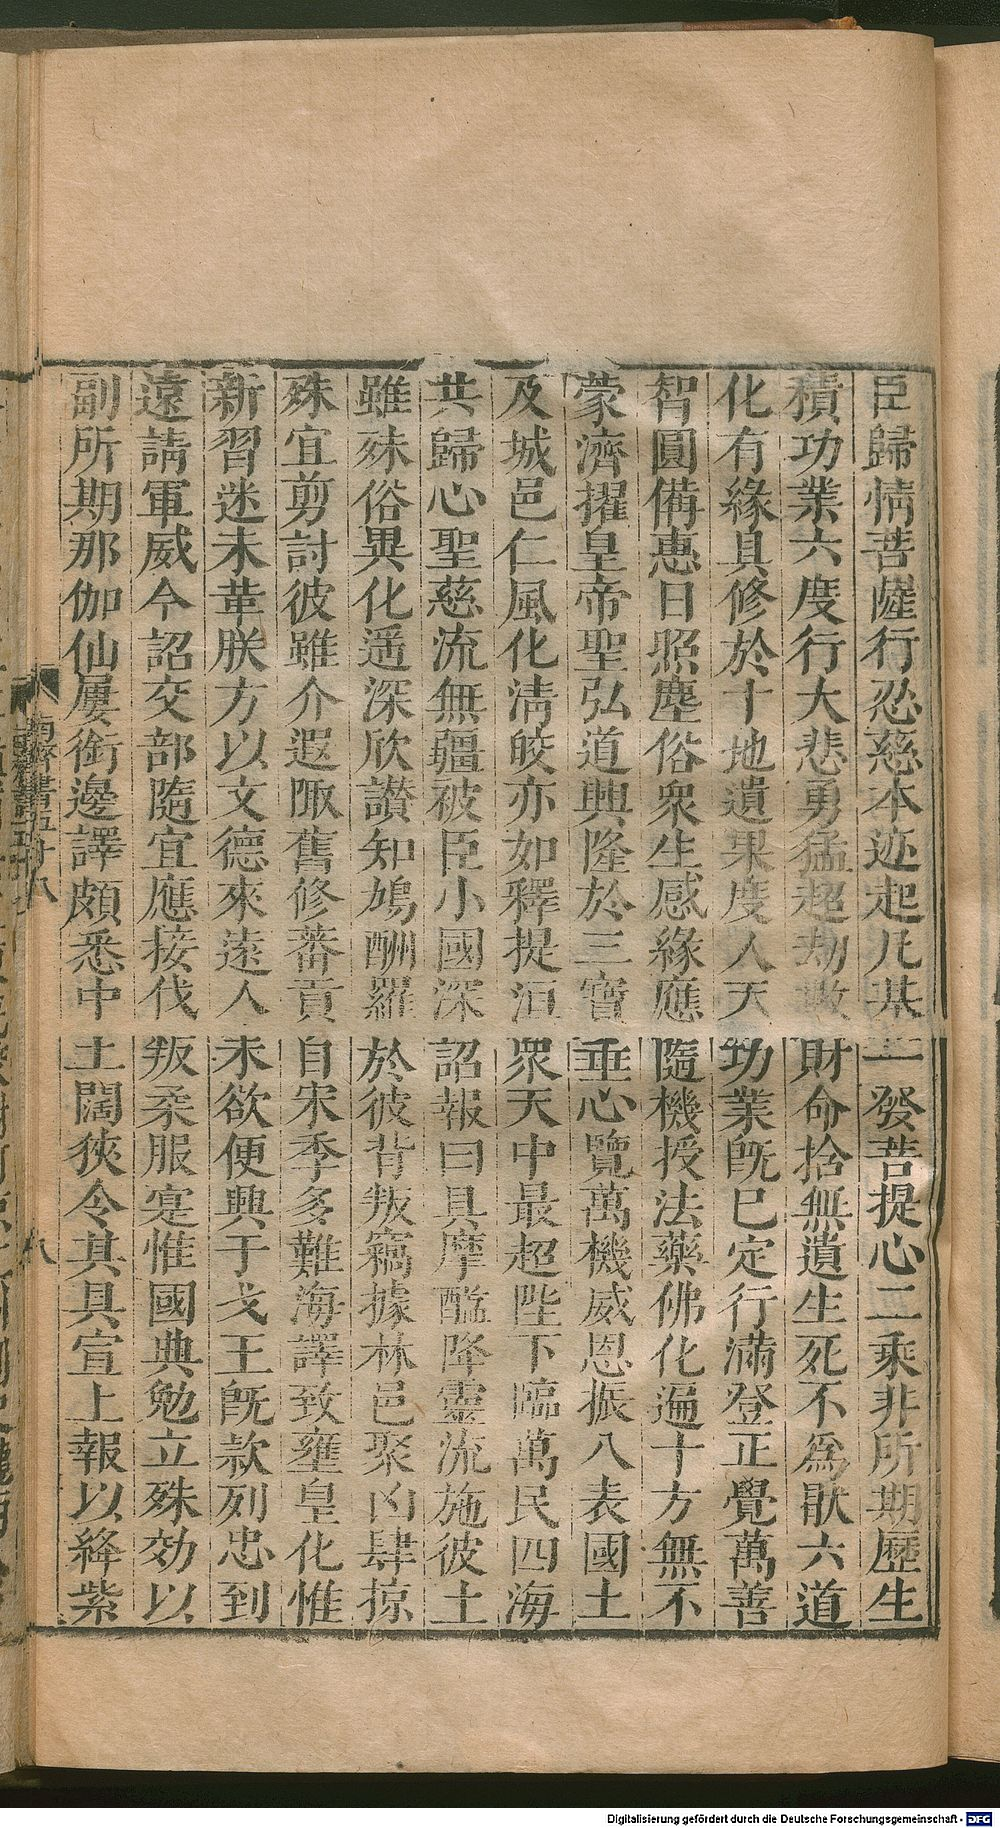 臣歸情菩薩行忍慈本迹起凡基一發菩提心二乘非所期歷生
積功業六度行大悲勇猛超劫數財命捨無遺生死不爲猒六道
化有緣具修於十地遺果度人天功業旣已定行滿登正覺萬善
智圓備惠日照塵俗衆生感緣應隨機授法藥佛化遍十方無不
蒙濟擢皇帝聖弘道興隆於三寶垂心覽萬機威恩振八表國土
及城邑仁風化淸皎亦如釋提洹衆天中最超陛下臨萬民四海
共歸心聖慈流無疆被臣小國深詔報曰具摩醯降靈流施彼土
雖殊俗異化遥深欣讃知鳩酬羅於彼背叛竊據林邑聚凶肆掠
殊宜剪討彼雖介遐陬舊修蕃貢自宋季多難海譯致壅皇化惟
新習迷未革朕方以文德來遠人未欲便興干戈王旣款列忠到
遠請軍威今詔交部隨宜應接伐叛柔服寔惟國典勉立殊効以
副所期那伽仙屢銜邊譯頗悉中土闊狹令其具宣上報以絳紫
南齊書五十八
八
Digitalisierung gefördert durch die Deutsche Forschungsgemeinschaft - DFG